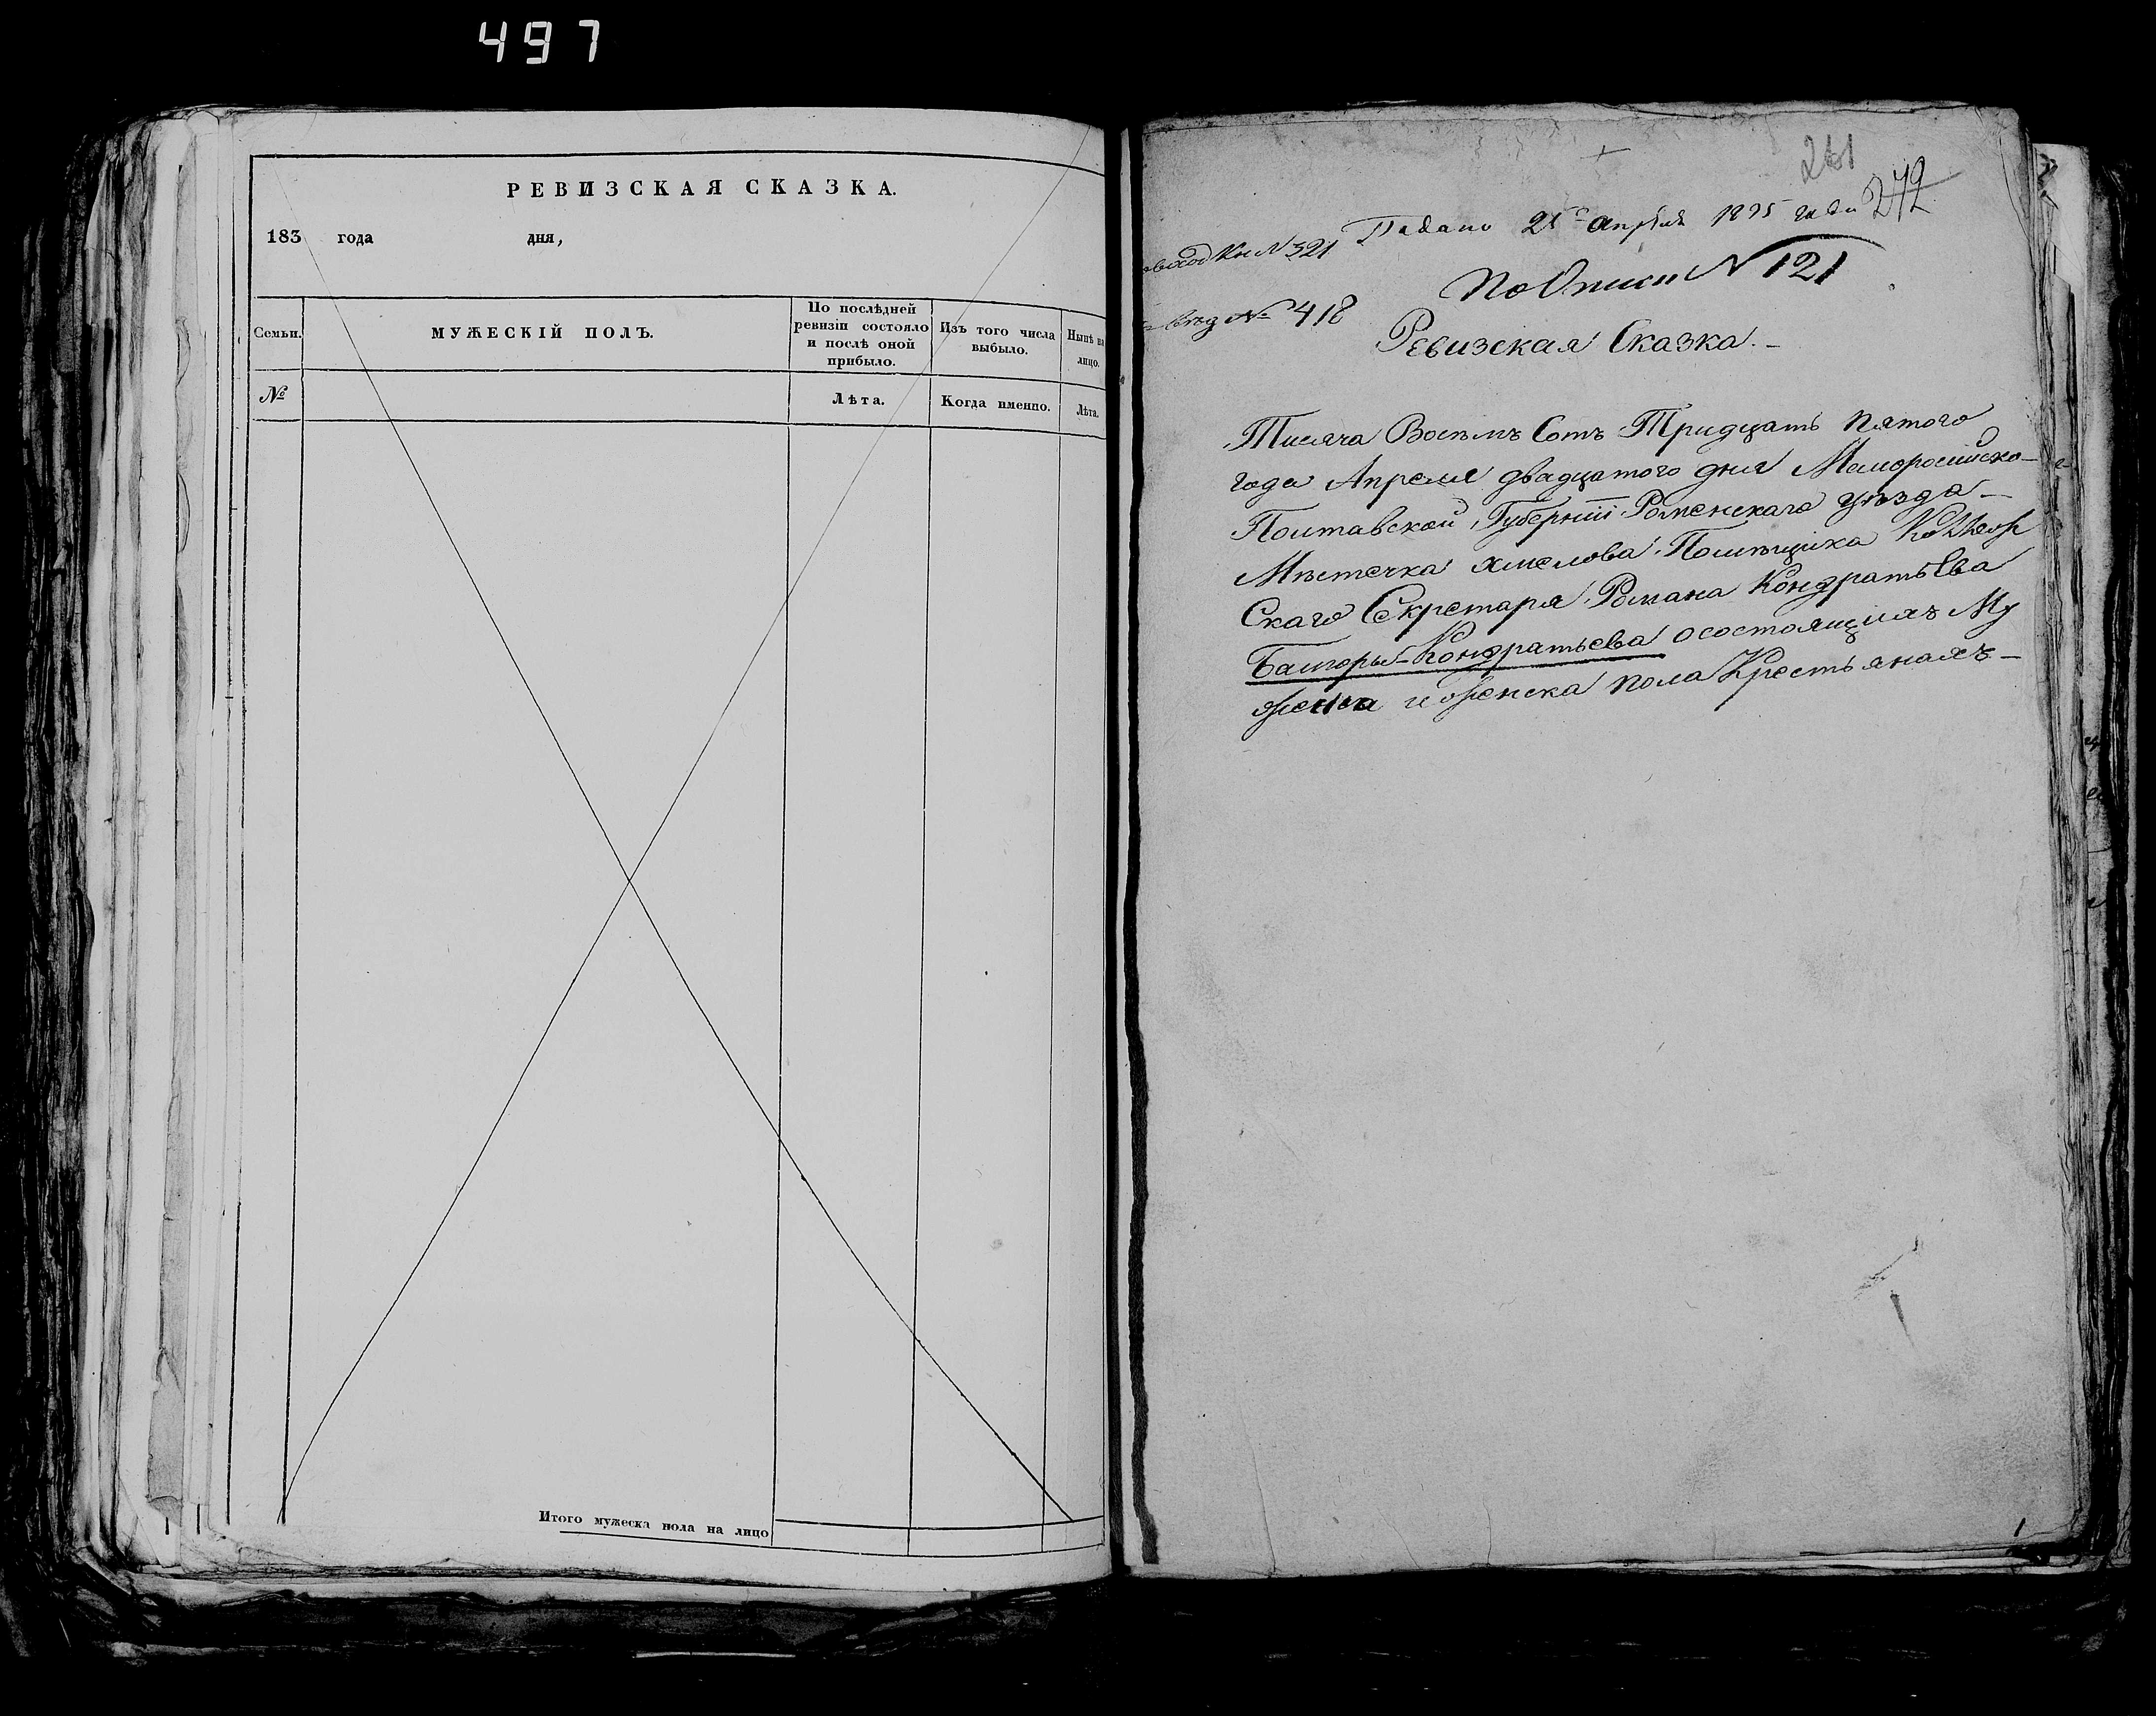 497
РЕВИЗСКАЯ СКАЗКА.
183 года дня,
Семьи.
МУЖЕСКІЙ ПОЛЪ.
По послѣдней
ревизіи состояло
и послѣ оной
прибыло.
Изъ того числа
выбыло.
Нынѣ на
лицо.
№
Лѣта.
Когда именно.
Лѣта.
Итого мужеска пола на лицо
261
272
Подано 25 апрѣля 1835 года
Кн N 321
По Описи N 121
№ 418
Ревизская Сказка.
Тисяча Восемъ Сотъ Тридцать пятого
года Апреля двадцатого дня Малоросийско-
Полтавской Губерніи Роменскаго уѣзда
Мѣстечка Хмелова Помѣщика Колеж
Скаго Секретаря Романа Кондратьева
Кондратьева осостоящихъ Му
жеска иженска пола Крестьянахъ